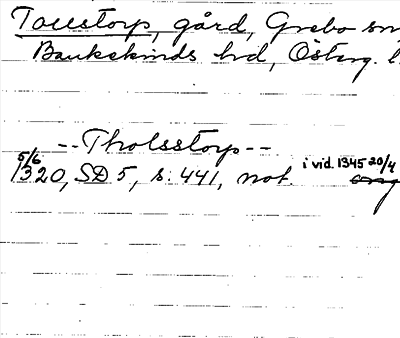 Toustorp, gård, Grebo sn
Bankekinds hd, Österg. l
--Tholsstorp--
5/6 1320, SD 5, s. 441, not. i vid. 1345 20/4